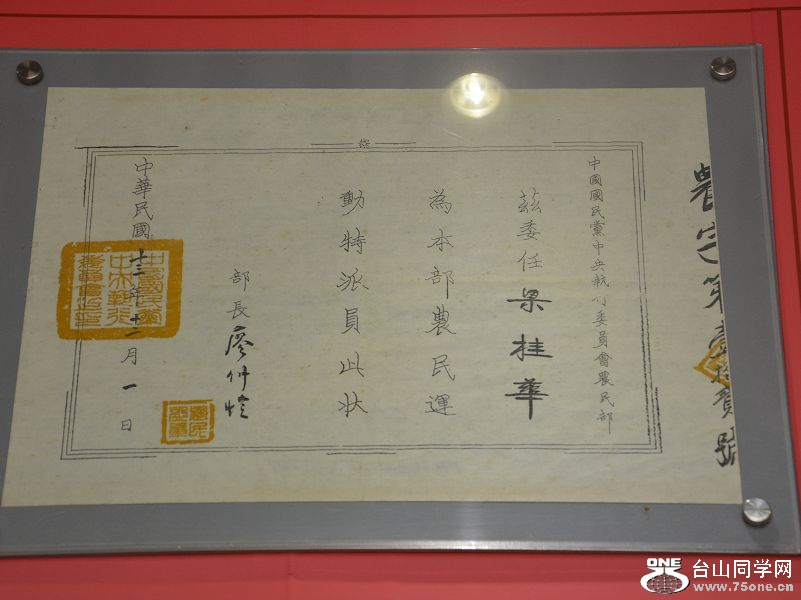 農字第壹拾號
中國國民黨中央執行委員會農民部
茲委任梁桂華
為本部農民運
動特派員此狀
部長廖仲愷
中華民國十三年十一月一日
中國國民黨
中央執行
委員會之印
農民
部章
ONE
台山同学网
www.75one.cn